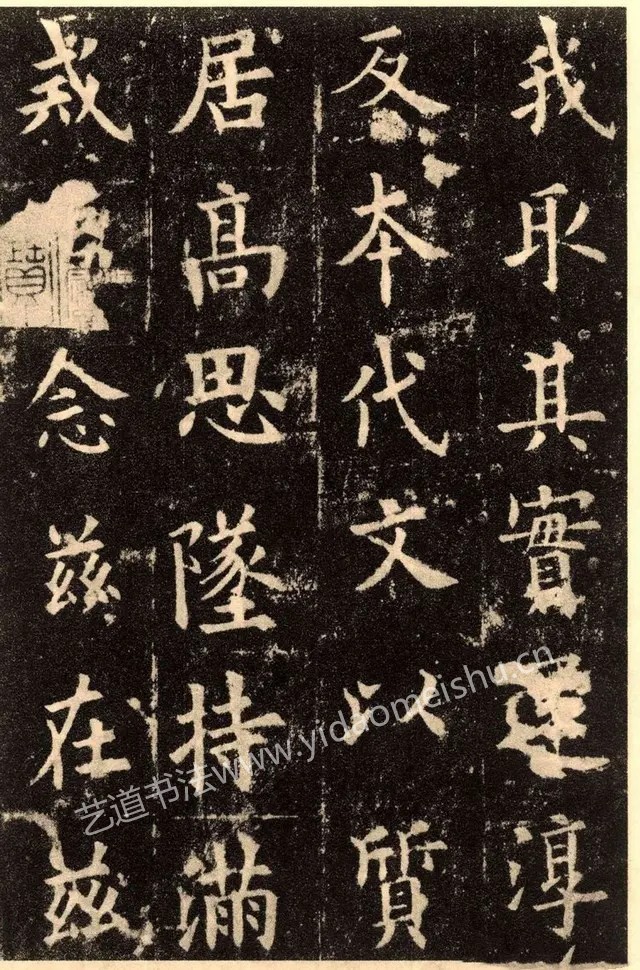 我取其實還淳
反本代文以質
居高思墜持滿
戒念兹在兹
艺道书法www.yidaomeishu.cn